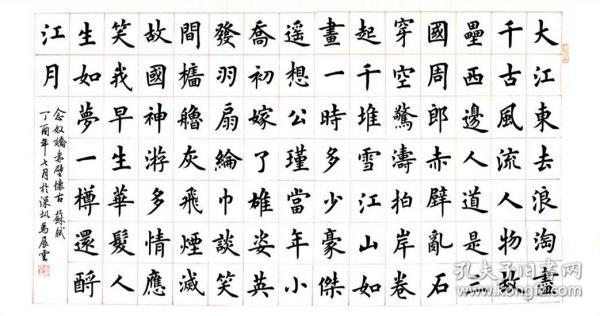 大江東去浪淘盡
千古風流人物故
壘西邊人道是三
國周郎赤壁亂石
穿空驚濤拍岸卷
起千堆雪江山如
畫一時多少豪傑
遥想公瑾當年小
喬初嫁了雄姿英
發羽扇綸巾談笑
間檣艣灰飛煙滅
故國神游多情應
笑我早生華髮人
生如夢一樽還酹
江月
念奴嬌赤壁懷古 蘇軾
丁酉年七月於深圳馬展雲
孔夫子旧书网